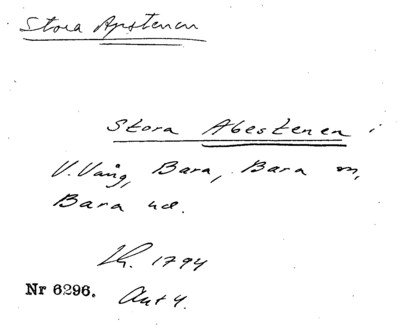 Stora Apstenen
Stora Abestenen i
V. Vång, Bara, Bara sn,
Bara hd.
1794
Nr 6296. Akt 4.